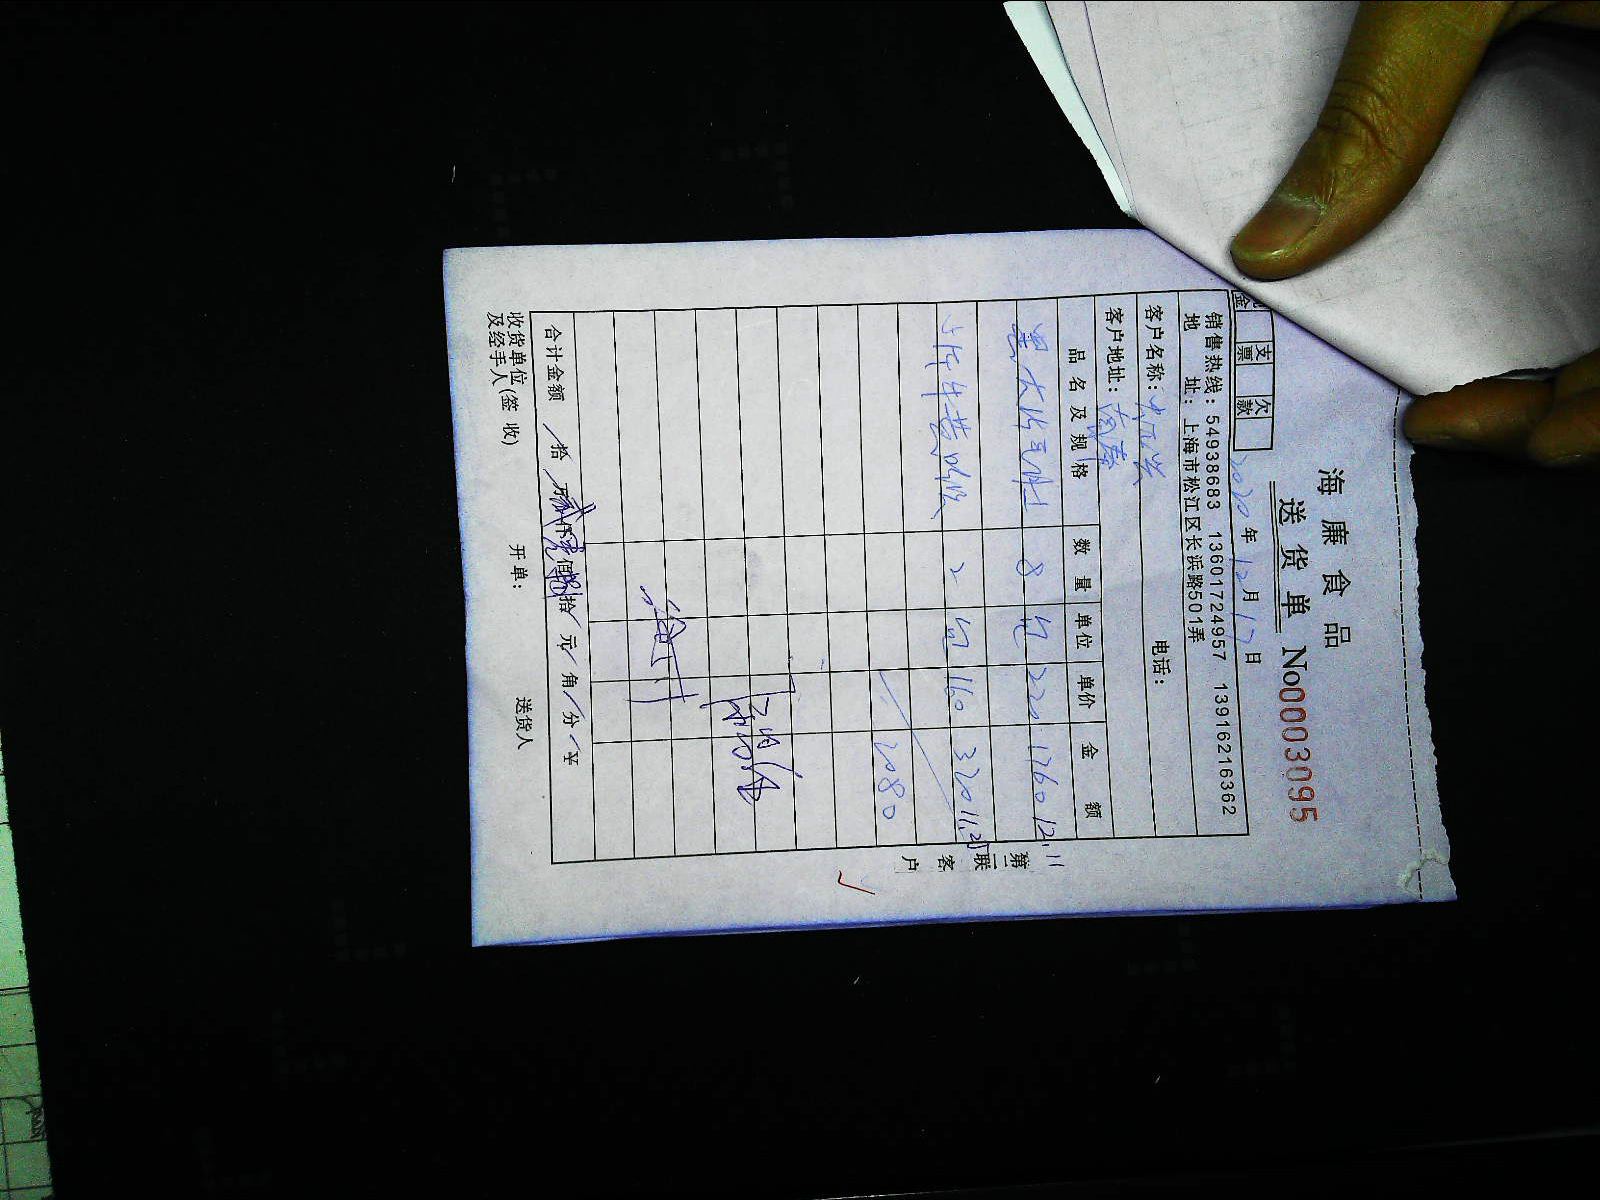 海廉食品
送货单 No0003095
支票 欠款
2020年12月17日
销售热线：54938683 13601724957 13916216362
地址：上海市松江区长浜路501弄
客户名称：
电话：
客户地址：
品名及规格 数量 单位 单价 金额
8 包 220 1760 12.11
2 包 160 320 11.20
2080
合计金额 拾 万 仟 佰 拾 元 角 分 ￥
收货单位
及经手人(签收) 开单： 送货人
第二联 客户